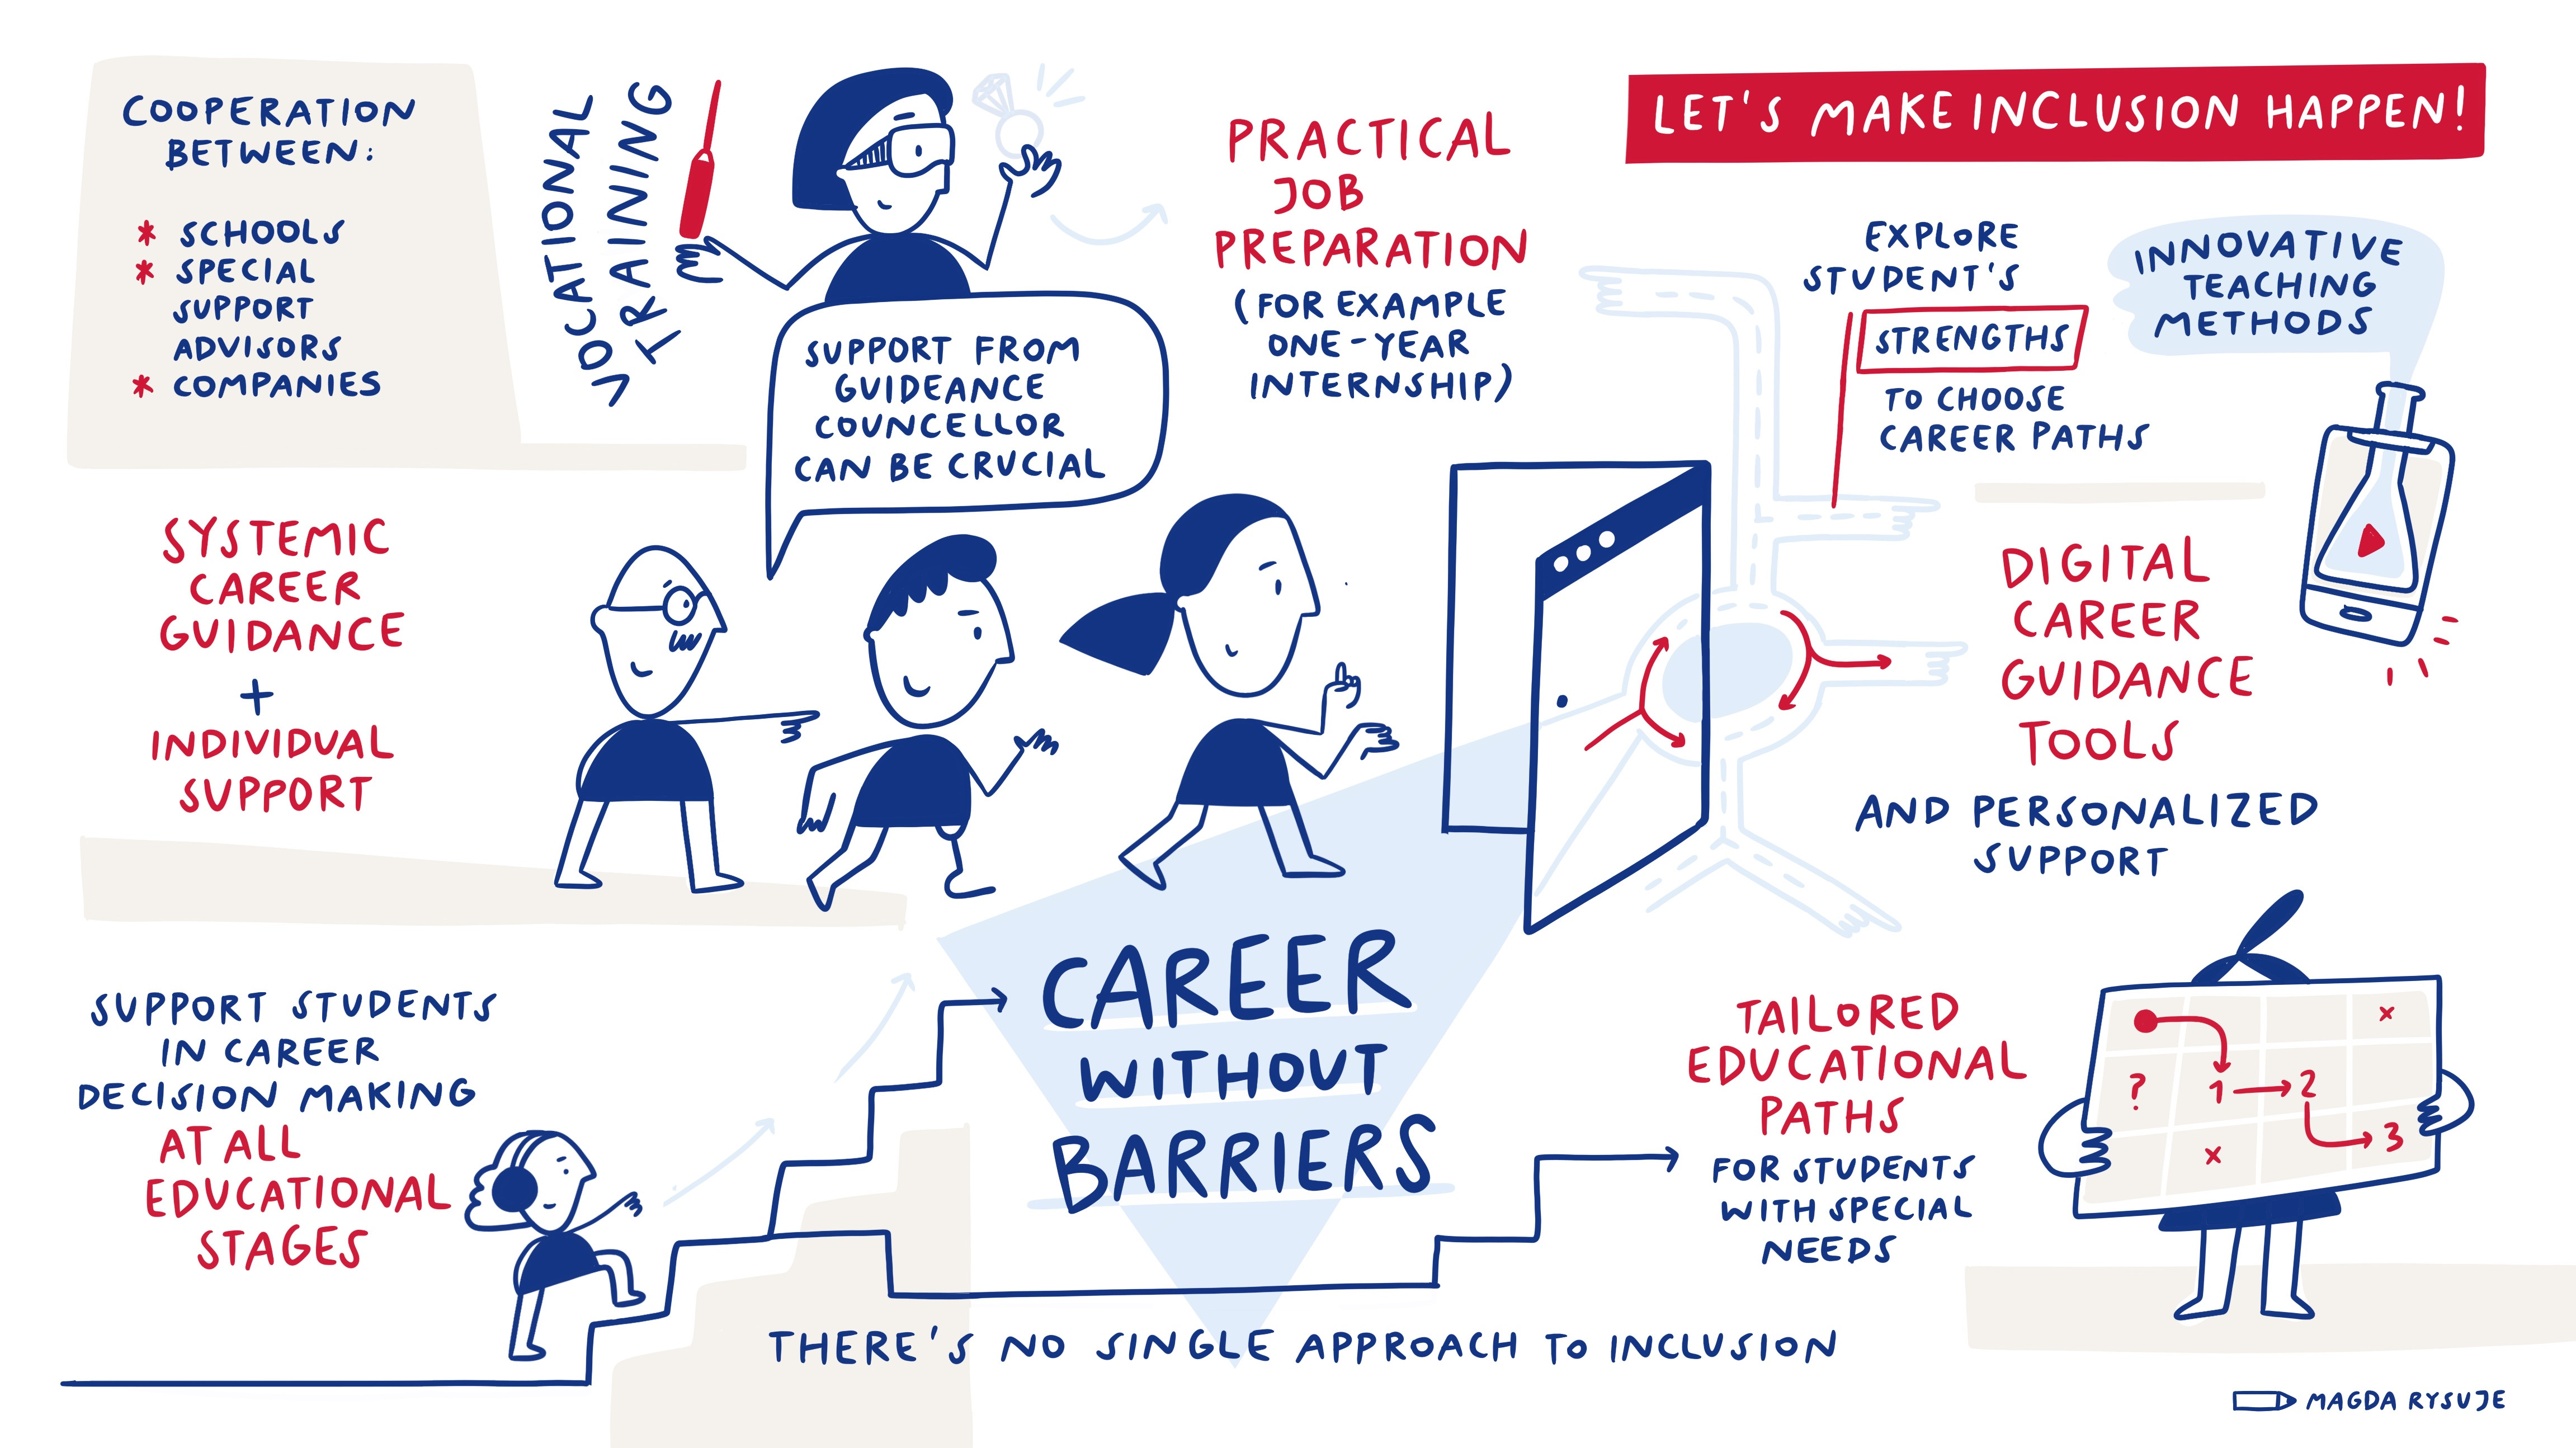 COOPERATION
BETWEEN:
* SCHOOLS
* SPECIAL
SUPPORT
ADVISORS
* COMPANIES
VOCATIONAL
TRAINING
SUPPORT FROM
GUIDEANCE
COUNCELLOR
CAN BE CRUCIAL
PRACTICAL
JOB
PREPARATION
(FOR EXAMPLE
ONE-YEAR
INTERNSHIP)
LET'S MAKE INCLUSION HAPPEN!
EXPLORE
STUDENT'S
STRENGTHS
TO CHOOSE
CAREER PATHS
INNOVATIVE
TEACHING
METHODS
SYSTEMIC
CAREER
GUIDANCE
+
INDIVIDUAL
SUPPORT
DIGITAL
CAREER
GUIDANCE
TOOLS
AND PERSONALIZED
SUPPORT
SUPPORT STUDENTS
IN CAREER
DECISION MAKING
AT ALL
EDUCATIONAL
STAGES
CAREER
WITHOUT
BARRIERS
TAILORED
EDUCATIONAL
PATHS
FOR STUDENTS
WITH SPECIAL
NEEDS
x
? 1 2
x 3
THERE'S NO SINGLE APPROACH TO INCLUSION
MAGDA RYSUJE